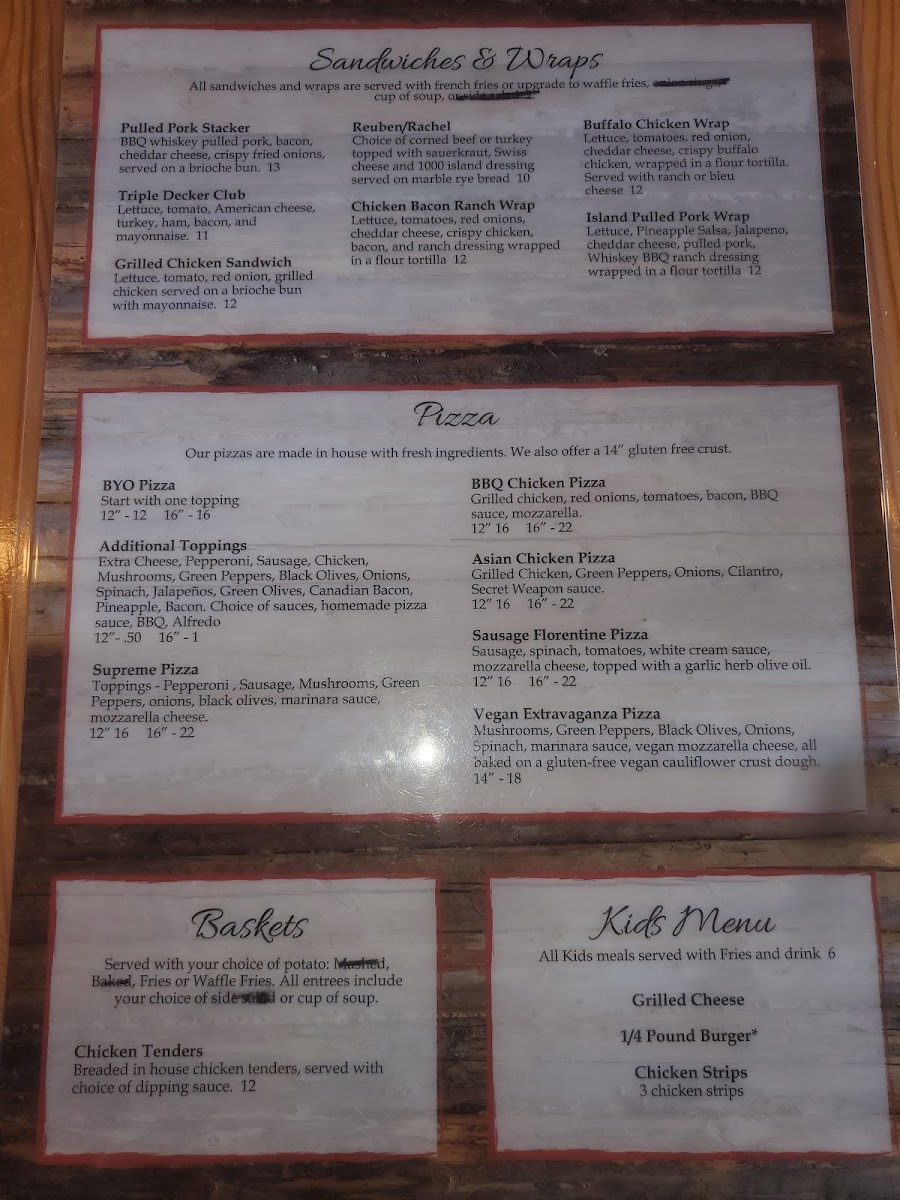 Sandwiches & Wraps
All sandwiches and wraps are served with french fries or upgrade to waffle fries, onion rings,
cup of soup, or side salad 2
Pulled Pork Stacker
BBQ whiskey pulled pork, bacon,
cheddar cheese, crispy fried onions,
served on a brioche bun. 13
Triple Decker Club
Lettuce, tomato, American cheese,
turkey, ham, bacon, and
mayonnaise. 11
Grilled Chicken Sandwich
Lettuce, tomato, red onion, grilled
chicken served on a brioche bun
with mayonnaise. 12
Reuben/Rachel
Choice of corned beef or turkey
topped with sauerkraut, Swiss
cheese and 1000 island dressing
served on marble rye bread 10
Chicken Bacon Ranch Wrap
Lettuce, tomatoes, red onions,
cheddar cheese, crispy chicken,
bacon, and ranch dressing wrapped
in a flour tortilla 12
Buffalo Chicken Wrap
Lettuce, tomatoes, red onion,
cheddar cheese, crispy buffalo
chicken, wrapped in a flour tortilla.
Served with ranch or bleu
cheese 12
Island Pulled Pork Wrap
Lettuce, Pineapple Salsa, Jalapeno,
cheddar cheese, pulled pork,
Whiskey BBQ ranch dressing
wrapped in a flour tortilla 12
Pizza
Our pizzas are made in house with fresh ingredients. We also offer a 14" gluten free crust.
BYO Pizza
Start with one topping
12" - 12 16" - 16
Additional Toppings
Extra Cheese, Pepperoni, Sausage, Chicken,
Mushrooms, Green Peppers, Black Olives, Onions,
Spinach, Jalapeños, Green Olives, Canadian Bacon,
Pineapple, Bacon. Choice of sauces, homemade pizza
sauce, BBQ, Alfredo
12"- .50 16" - 1
Supreme Pizza
Toppings - Pepperoni , Sausage, Mushrooms, Green
Peppers, onions, black olives, marinara sauce,
mozzarella cheese.
12" 16 16" - 22
BBQ Chicken Pizza
Grilled chicken, red onions, tomatoes, bacon, BBQ
sauce, mozzarella.
12" 16 16" - 22
Asian Chicken Pizza
Grilled Chicken, Green Peppers, Onions, Cilantro,
Secret Weapon sauce.
12" 16 16" - 22
Sausage Florentine Pizza
Sausage, spinach, tomatoes, white cream sauce,
mozzarella cheese, topped with a garlic herb olive oil.
12" 16 16" - 22
Vegan Extravaganza Pizza
Mushrooms, Green Peppers, Black Olives, Onions,
Spinach, marinara sauce, vegan mozzarella cheese, all
baked on a gluten-free vegan cauliflower crust dough.
14" - 18
Baskets
Served with your choice of potato: Mashed,
Baked, Fries or Waffle Fries. All entrees include
your choice of side salad or cup of soup.
Chicken Tenders
Breaded in house chicken tenders, served with
choice of dipping sauce. 12
Kids Menu
All Kids meals served with Fries and drink 6
Grilled Cheese
1/4 Pound Burger*
Chicken Strips
3 chicken strips